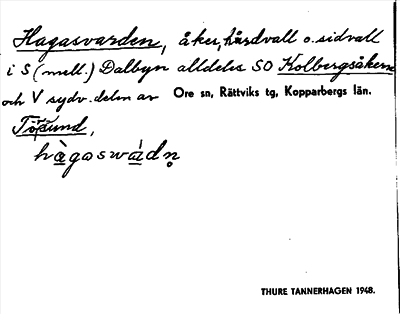 Hagasvarden, åker, hårdvall o. sidvall
i S (mell.) Dalbyn alldeles SO Kolbergsåkern
och V sydv. delen av Ore sn, Rättviks tg, Kopparbergs län.
hàgaswádn̥
THURE TANNERHAGEN 1948.